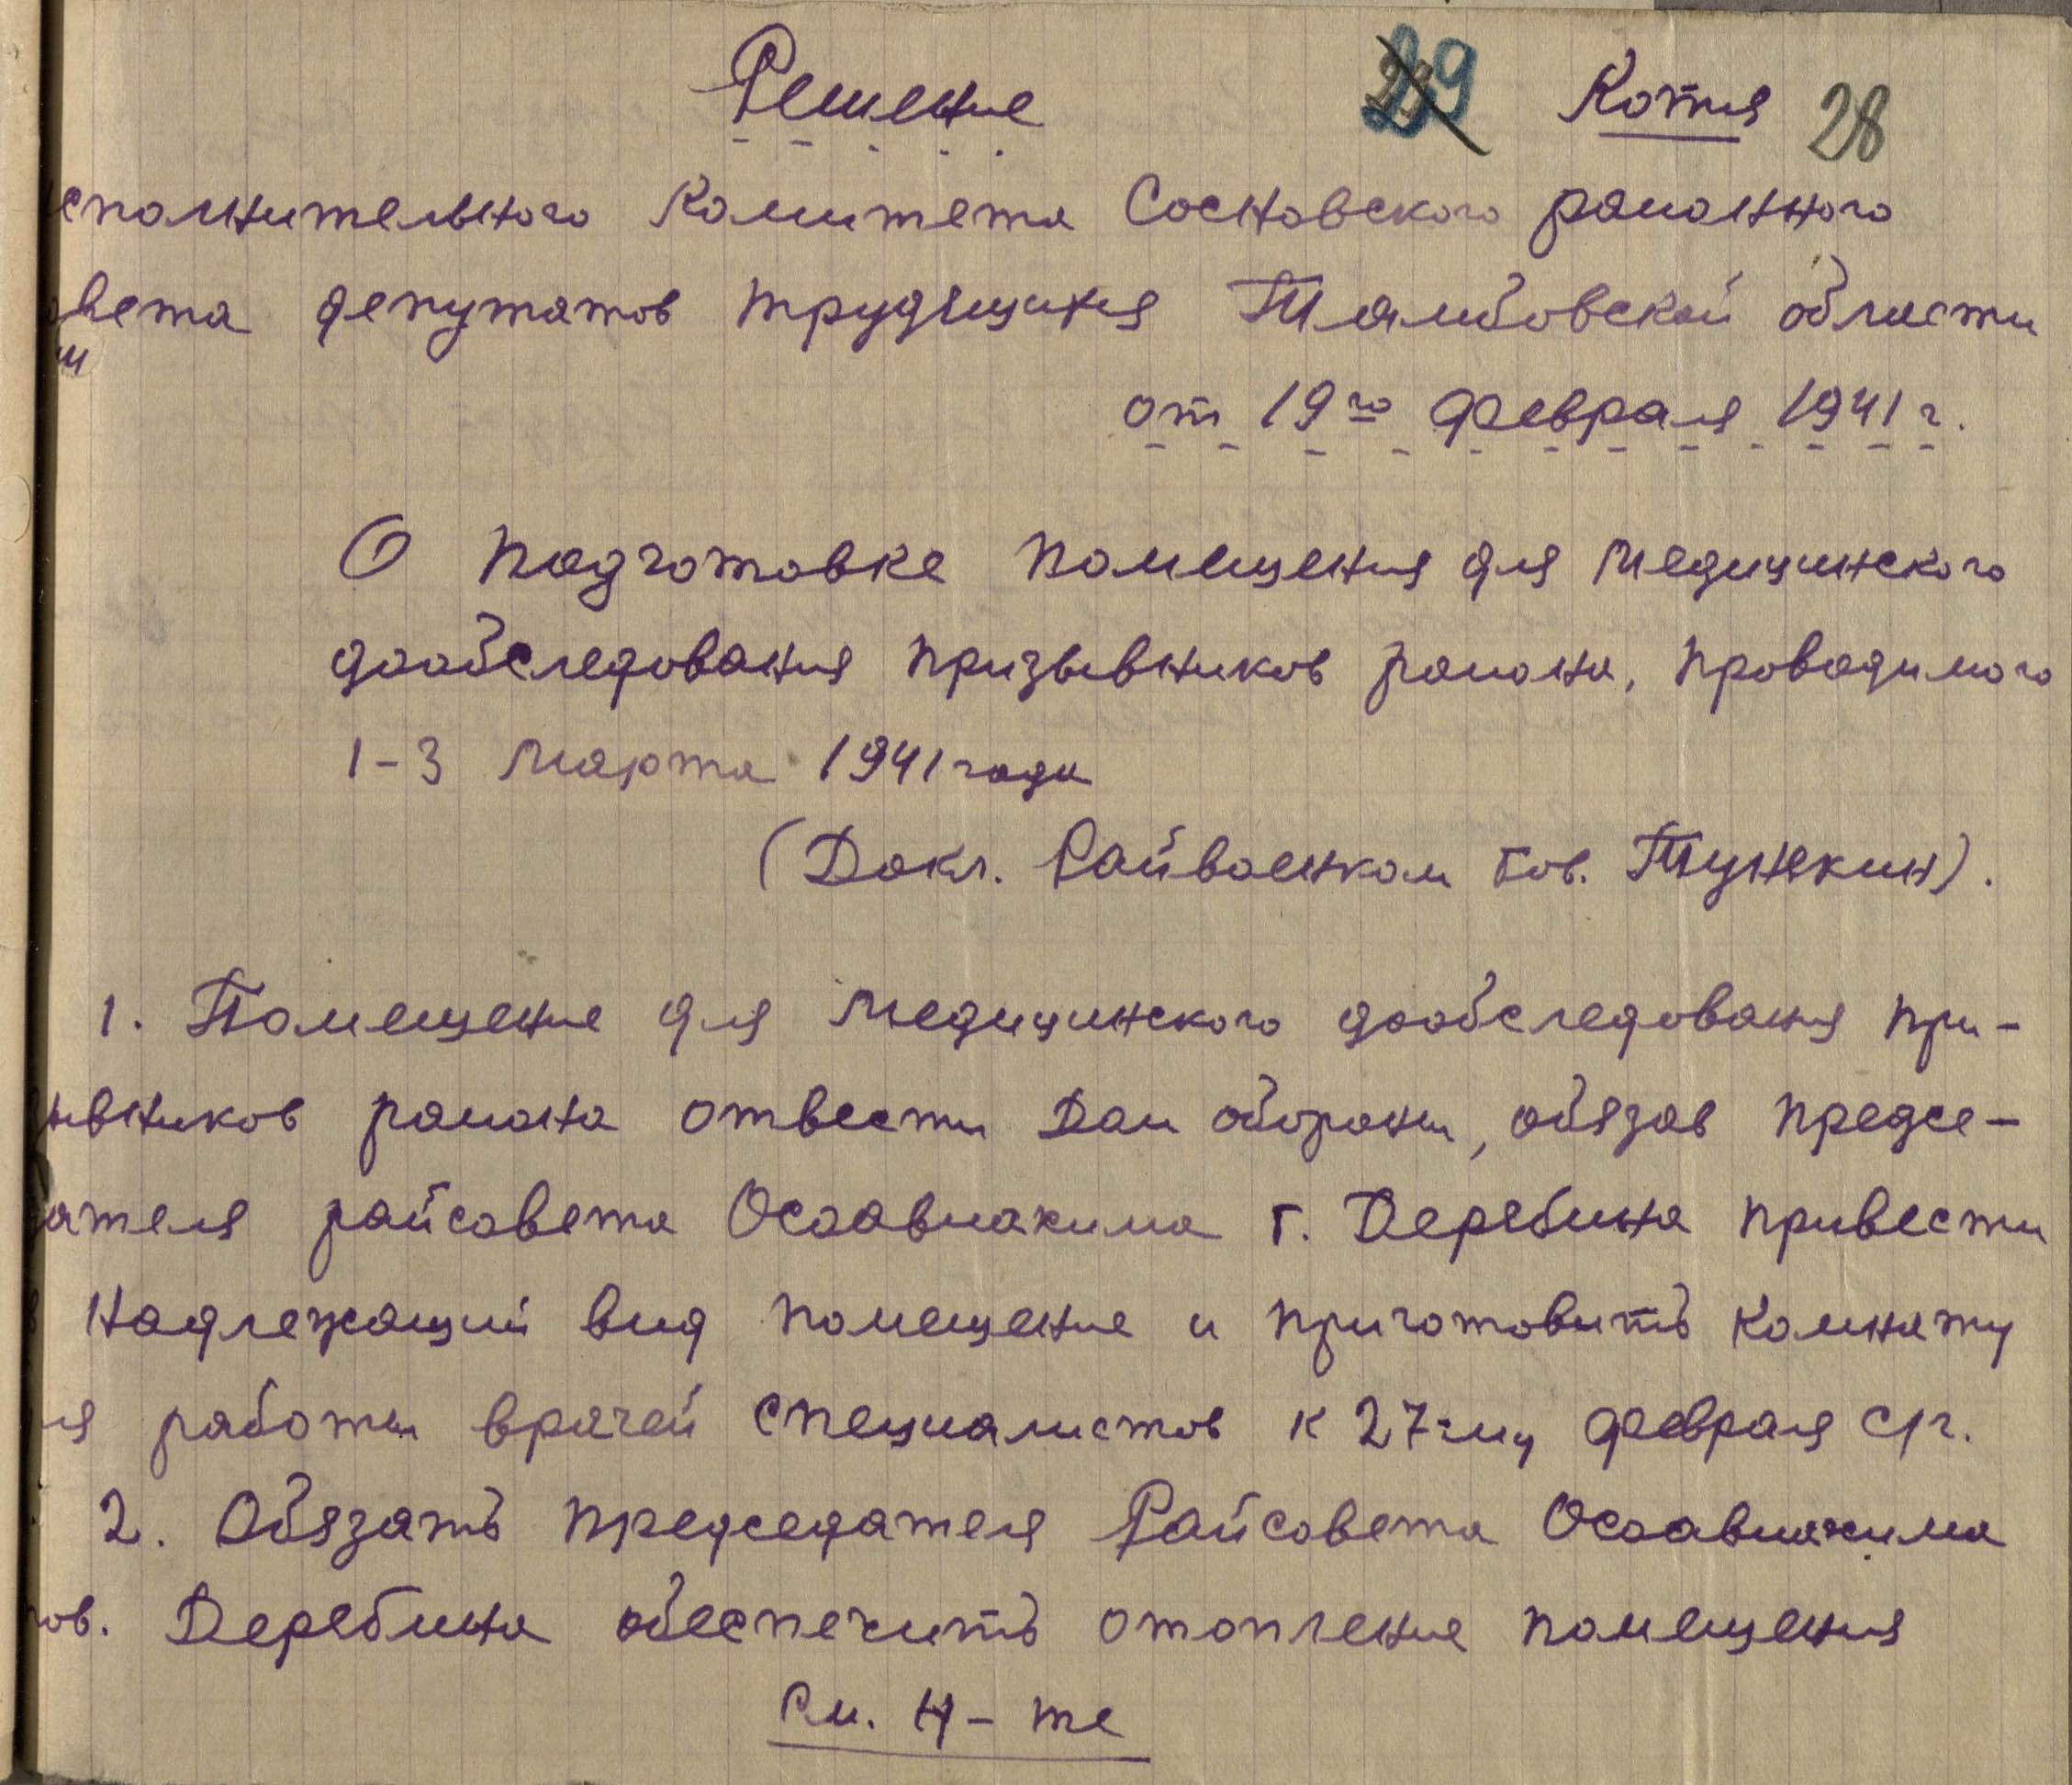 Решение 29 Копия 28
сполнительного Комитета Сосновского районного
овета депутатов трудящихся Тамбовской области
от 19го февраля 1941 г.
О подготовке помещения для медицинского
дообследования призывников района, проводимого
1-3 марта 1941 года
(Докл. Райвоенком тов. Тунекин).
1. Помещение для медицинского дообследования при-
ывников района отвести Дом обороны, обязав предсе-
ателя райсовета Осоавиахима т. Дерябина привести
надлежащий вид помещение и приготовить комнату
ля работы врачей специалистов к 27-му февраля с/г.
2. Обязать председателя Райсовета Осоавиахима
тов. Дерябина обеспечить отопление помещения
См. Н-те